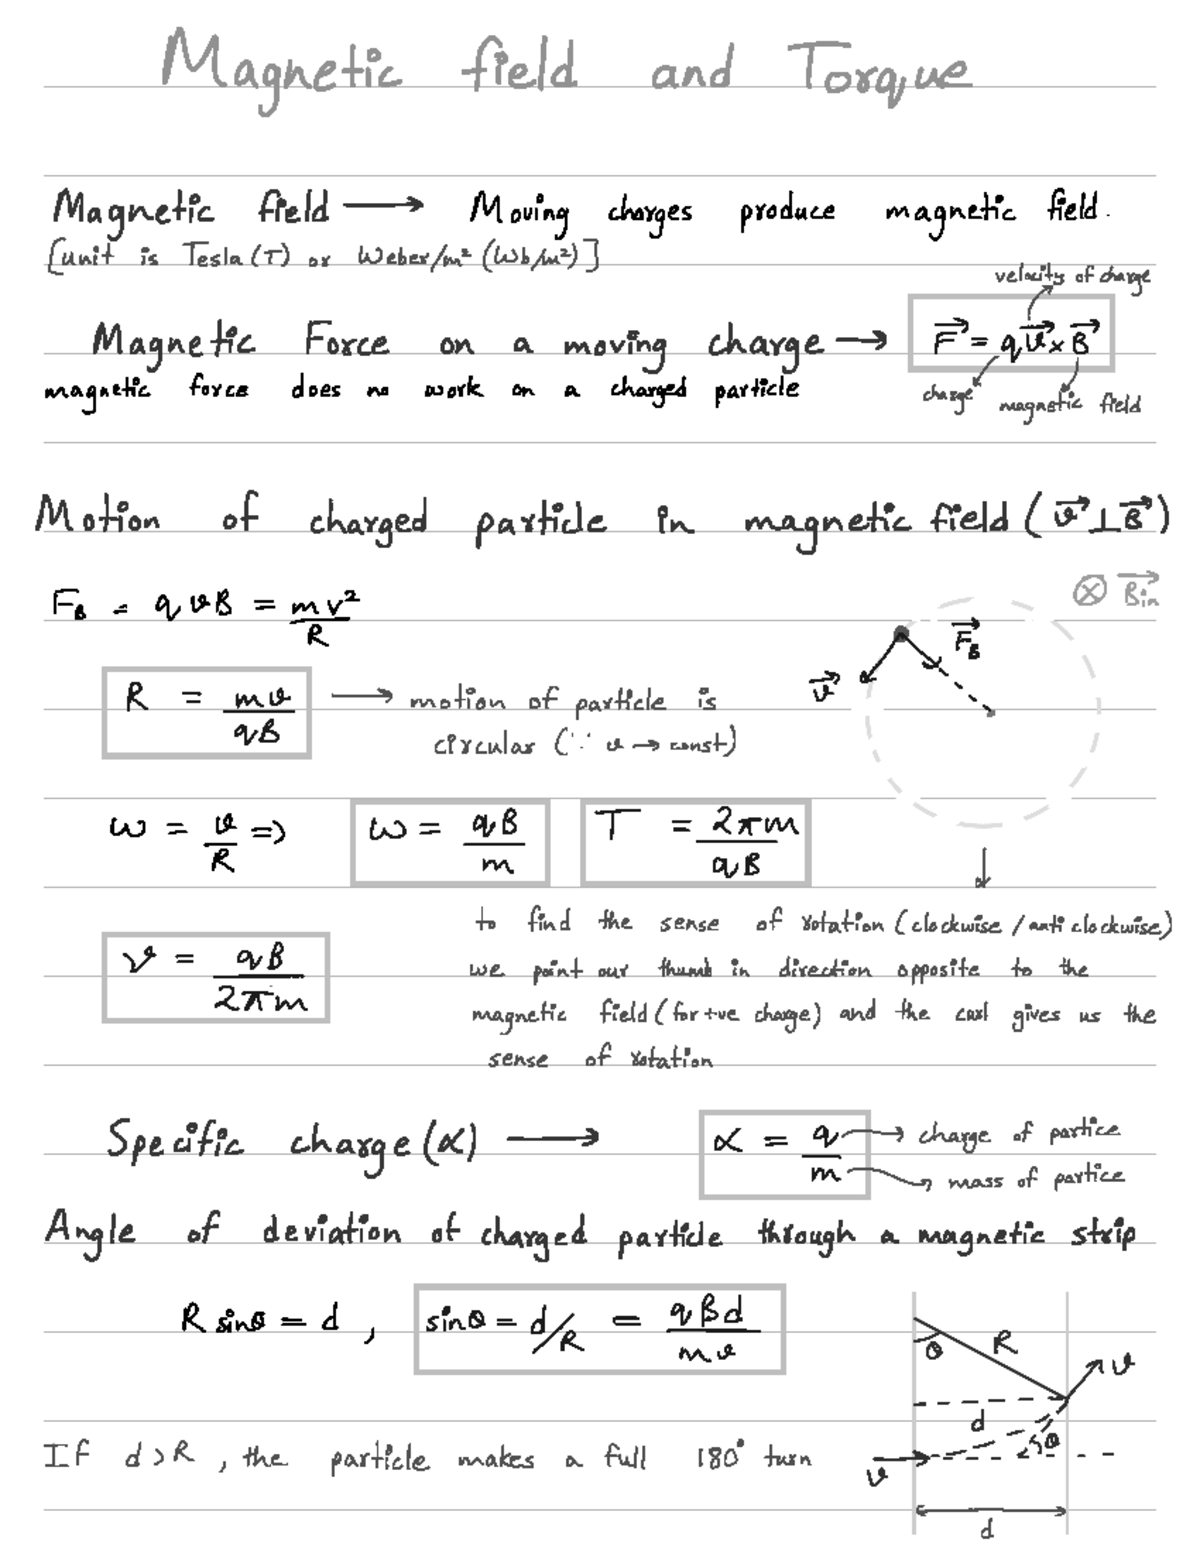 Magnetic field and Torque
Magnetic field ⟶ Moving charges produce magnetic field.
[unit is Tesla (T) or Weber/m² (Wb/m²)]
velocity of charge
Magnetic Force on a moving charge ⟶ F⃗ = qv⃗ × B⃗
magnetic force does no work on a charged particle
charge magnetic field
Motion of charged particle in magnetic field (v⃗ ⊥ B⃗)
F_B = qvB = mv²/R
⊗ B⃗in
F⃗_B
v⃗
R = mv/qB ⟶ motion of particle is
circular (∵ v → const)
ω = v/R ⇒ ω = qB/m T = 2πm/qB
↓
to find the sense of rotation (clockwise / anti clockwise)
ν = qB/2πm
we point our thumb in direction opposite to the
magnetic field (for +ve charge) and the curl gives us the
sense of rotation
Specific charge (α) ⟶ α = q/m
→ charge of partice
→ mass of partice
Angle of deviation of charged particle through a magnetic strip
R sinθ = d , sinθ = d/R = qBd/mv
θ R v
d
θ
If d > R , the particle makes a full 180° turn
v
d